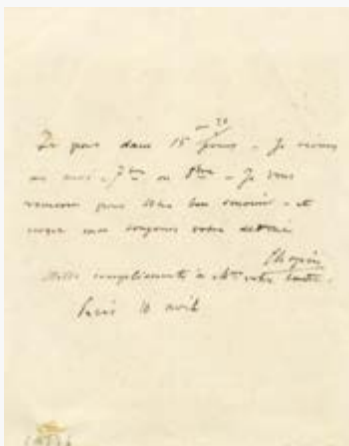 Je pars dans 15 jours - Je reviens
au mois - 7bre ou 8bre - Je vous
remercie pour votre bon souvenir - et
croyez moi toujours votre dévoué
Chopin
Mille compliments à Mme votre tante.
Paris 10 avril